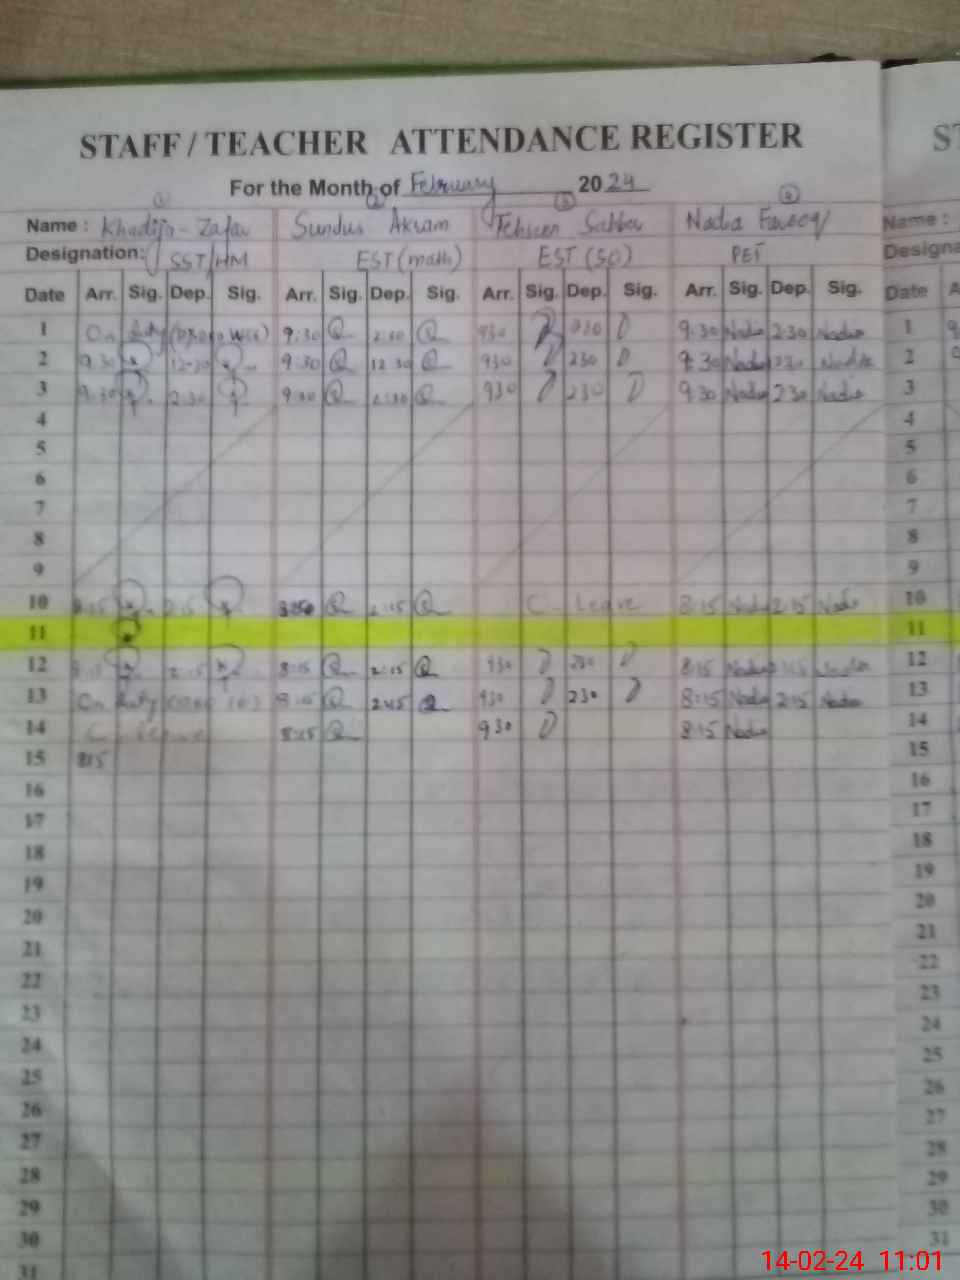 STAFF / TEACHER ATTENDANCE REGISTER
For the Month of February 2024
① ② ③ ④
Name : Khadija Zafar Sundus Akram Tehseen Nadia Farooq Name :
Designation: SST/HM EST (math) EST (SC) PET
Date Arr. Sig. Dep. Sig. Arr. Sig. Dep. Sig. Arr. Sig. Dep. Sig. Arr. Sig. Dep. Sig. Date
1 On duty 9:30 2:30 930 230 9:30 Nadia 2:30 Nadia 1
2 9:30 12:30 9:30 12:30 930 230 9:30 Nadia 230 Nadia 2
3 9:30 2:30 9:30 2:30 930 230 9:30 Nadia 230 Nadia 3
4 4
5 5
6 6
7 7
8 8
9 9
10 8:15 2:15 2:15 C-Leave 8:15 Nadia 2:15 Nadia 10
11 11
12 8:15 2:15 8:15 2:15 930 230 8:15 Nadia 2:15 Nadia 12
13 On duty 8:15 2:45 930 230 8:15 Nadia 2:15 Nadia 13
14 C-Leave 8:15 930 8:15 Nadia 14
15 815 15
16 16
17 17
18 18
19 19
20 20
21 21
22 22
23 23
24 24
25 25
26 26
27 27
28 28
29 29
30 30
31 31
14-02-24 11:01